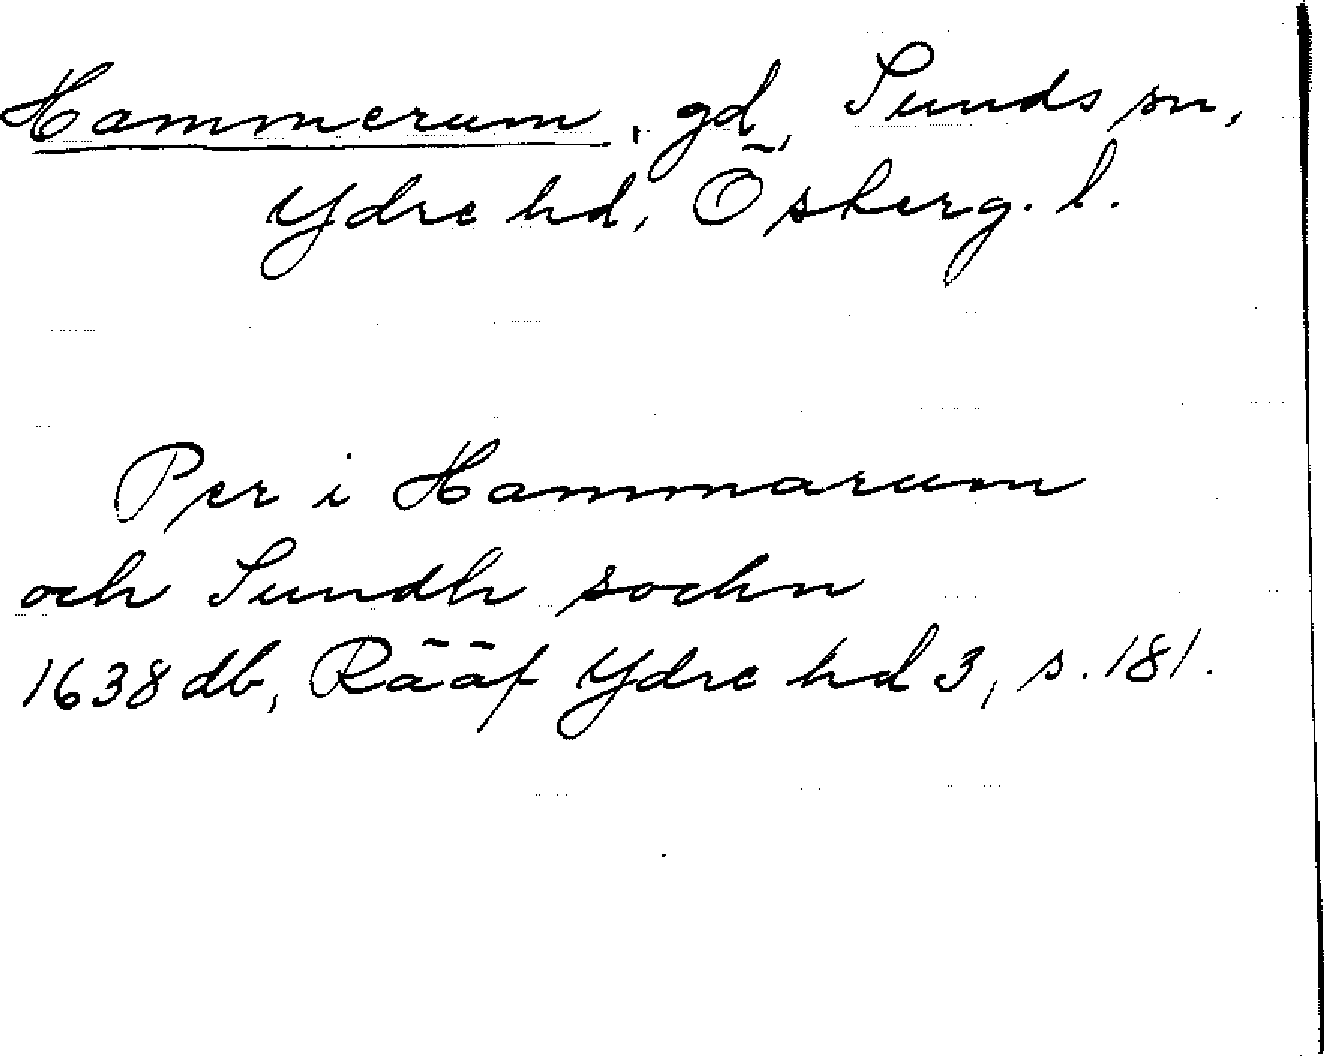 Hammerum, gd, Sunds sn,
Ydre hd, Östergg. l.
Per i Hammarum
och Sundh sochn
1638 db, Rääf Ydre hd 3, s. 181.